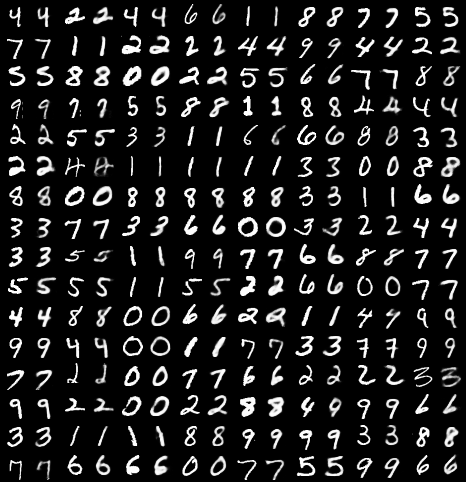 4 4 2 2 4 4 6 6 1 1 8 8 7 7 5 5
7 7 1 1 2 2 2 2 4 4 9 9 4 4 2 2
5 5 8 8 0 0 2 2 5 5 6 6 7 7 8 8
9 9 7 7 5 5 8 8 1 1 8 8 4 4 4 4
2 2 5 5 3 3 1 1 6 6 6 6 8 8 3 3
2 2 4 4 1 1 1 1 1 1 3 3 0 0 8 8
8 8 0 0 8 8 8 8 8 8 3 3 1 1 6 6
3 3 7 7 3 3 6 6 0 0 3 3 2 2 4 4
3 3 5 5 1 1 9 9 7 7 6 6 8 8 7 7
5 5 5 5 1 1 5 5 2 2 6 6 0 0 7 7
4 4 8 8 0 0 6 6 2 2 1 1 4 4 9 9
9 9 4 4 0 0 1 1 7 7 3 3 7 7 9 9
7 7 2 2 0 0 7 7 6 6 2 2 2 2 3 3
9 9 2 2 0 0 2 2 8 8 4 4 9 9 6 6
3 3 1 1 1 1 8 8 9 9 9 9 3 3 8 8
7 7 6 6 6 6 0 0 7 7 5 5 9 9 6 6